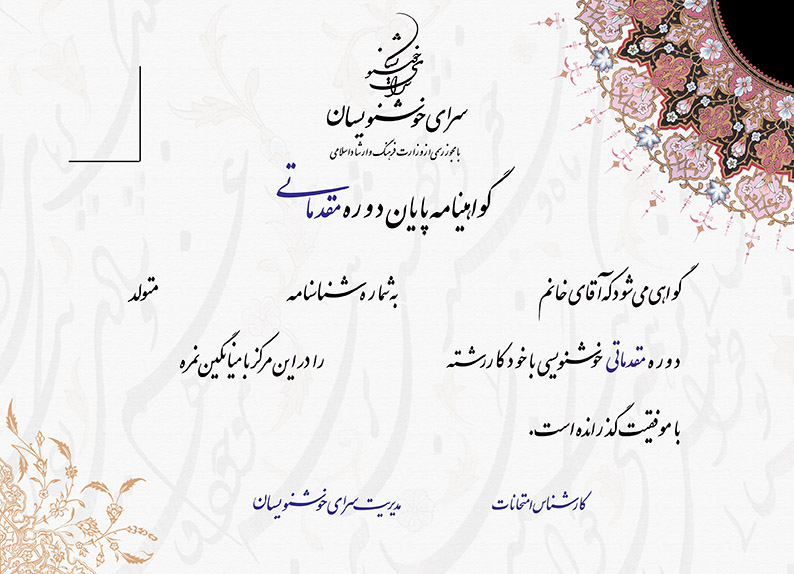 سرای خوشنویسان
سرای خوشنویسان
با مجوز رسمی از وزارت فرهنگ و ارشاد اسلامی
گواهینامه پایان دوره مقدماتی
گواهی می شود که آقای خانم به شماره شناسنامه متولد
دوره مقدماتی خوشنویسی با خودکار رشته را در این مرکز با میانگین نمره
با موفقیت گذرانده است.
کارشناس امتحانات مدیریت سرای خوشنویسان